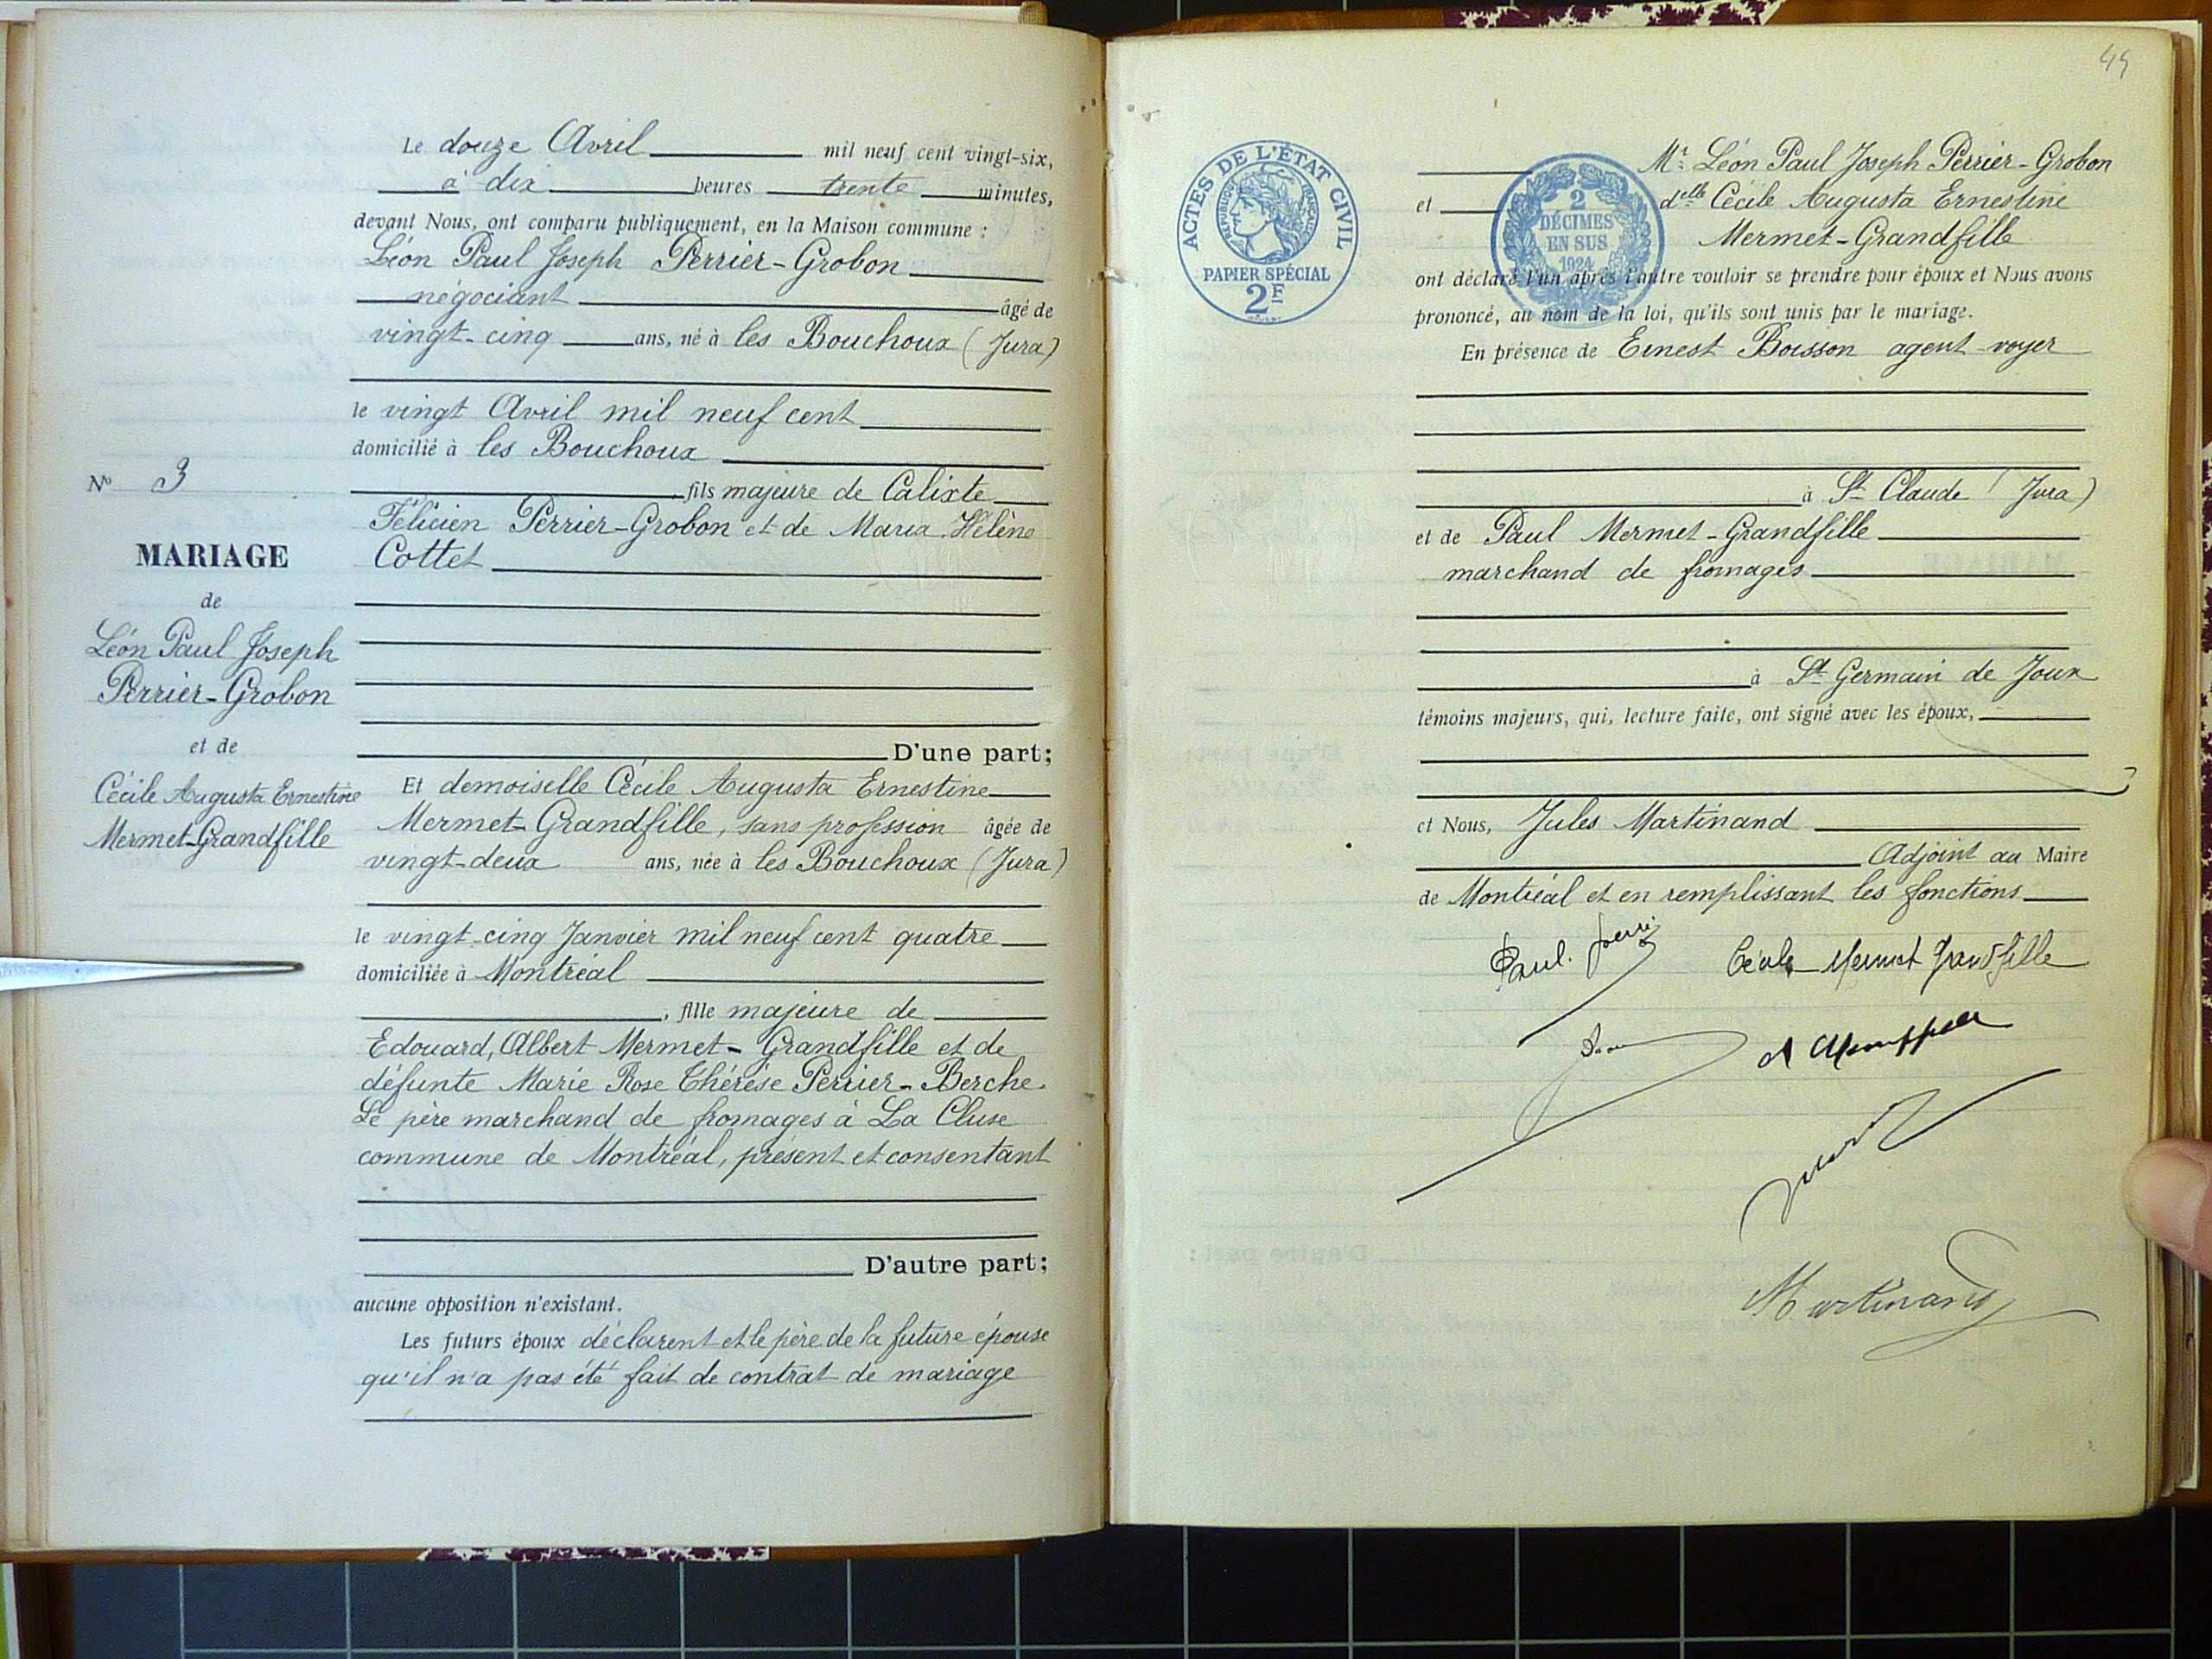 Le douze Avril mil neuf cent vingt-six,
à dix heures trente minutes,
devant Nous, ont comparu publiquement, en la Maison commune :
Léon Paul Joseph Perrier-Grobon
négociant âgé de
vingt-cinq ans, né à les Bouchoux (Jura)
le vingt Avril mil neuf cent
domicilié à les Bouchoux
fils majeure de Calixte
Félicien Perrier-Grobon et de Maria Hélène
Cottet
D'une part;
Et demoiselle Cécile Augusta Ernestine
Mermet-Grandfille, sans profession âgée de
vingt-deux ans, née à les Bouchoux (Jura)
le vingt-cinq Janvier mil neuf cent quatre
domiciliée à Montréal
, fille majeure de
Edouard, Albert Mermet-Grandfille et de
défunte Marie Rose Thérèse Perrier-Berche.
Le père marchand de fromages à La Cluse
commune de Montréal, présent et consentant
D'autre part;
aucune opposition n'existant.
Les futurs époux déclarent et le père de la future épouse
qu'il n'a pas été fait de contrat de mariage
N° 3
MARIAGE
de
Léon Paul Joseph
Perrier-Grobon
et de
Cécile Augusta Ernestine
Mermet-Grandfille
ACTES DE L'ÉTAT CIVIL
RÉPUBLIQUE FRANÇAISE
PAPIER SPÉCIAL
2F
2
DÉCIMES
EN SUS
1924
Mr Léon Paul Joseph Perrier-Grobon
et delle Cécile Augusta Ernestine
Mermet-Grandfille
ont déclaré l'un après l'autre vouloir se prendre pour époux et Nous avons
prononcé, au nom de la loi, qu'ils sont unis par le mariage.
En présence de Ernest Boisson agent-voyer
à St Claude (Jura)
et de Paul Mermet-Grandfille
marchand de fromages
à St Germain de Joux
témoins majeurs, qui, lecture faite, ont signé avec les époux,
et Nous, Jules Martinand
Adjoint au Maire
de Montréal et en remplissant les fonctions
Paul Cécile Mermet Grandfille
Martinand